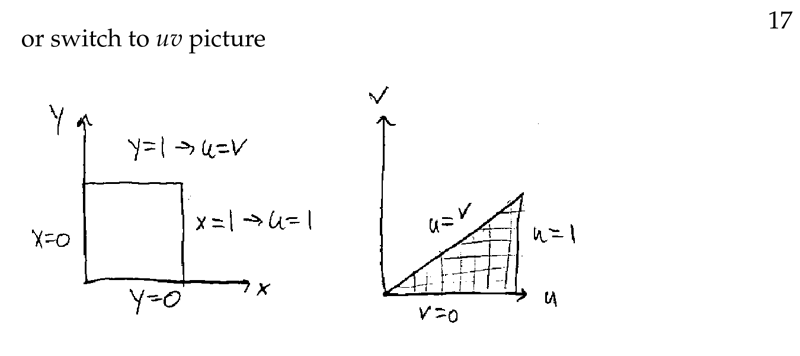 17
or switch to uv picture
y
y=1 → u=v
x=0
x=1 → u=1
y=0
x
v
u=v
u=1
v=0
u